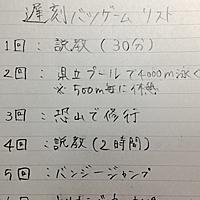 遅刻バツゲームリスト
1回：説教（30分）
2回：県立プールで4000m泳ぐ
※500m毎に休憩
3回：恐山で修行
4回：説教（2時間）
5回：バンジージャンプ